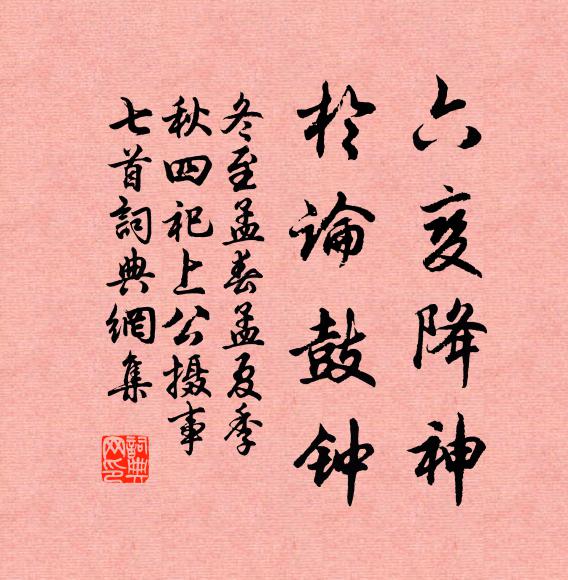 六变降神
於论鼓钟
冬至孟春孟夏季
秋四祀上公摄事
七首詞典網集
詞典
网印